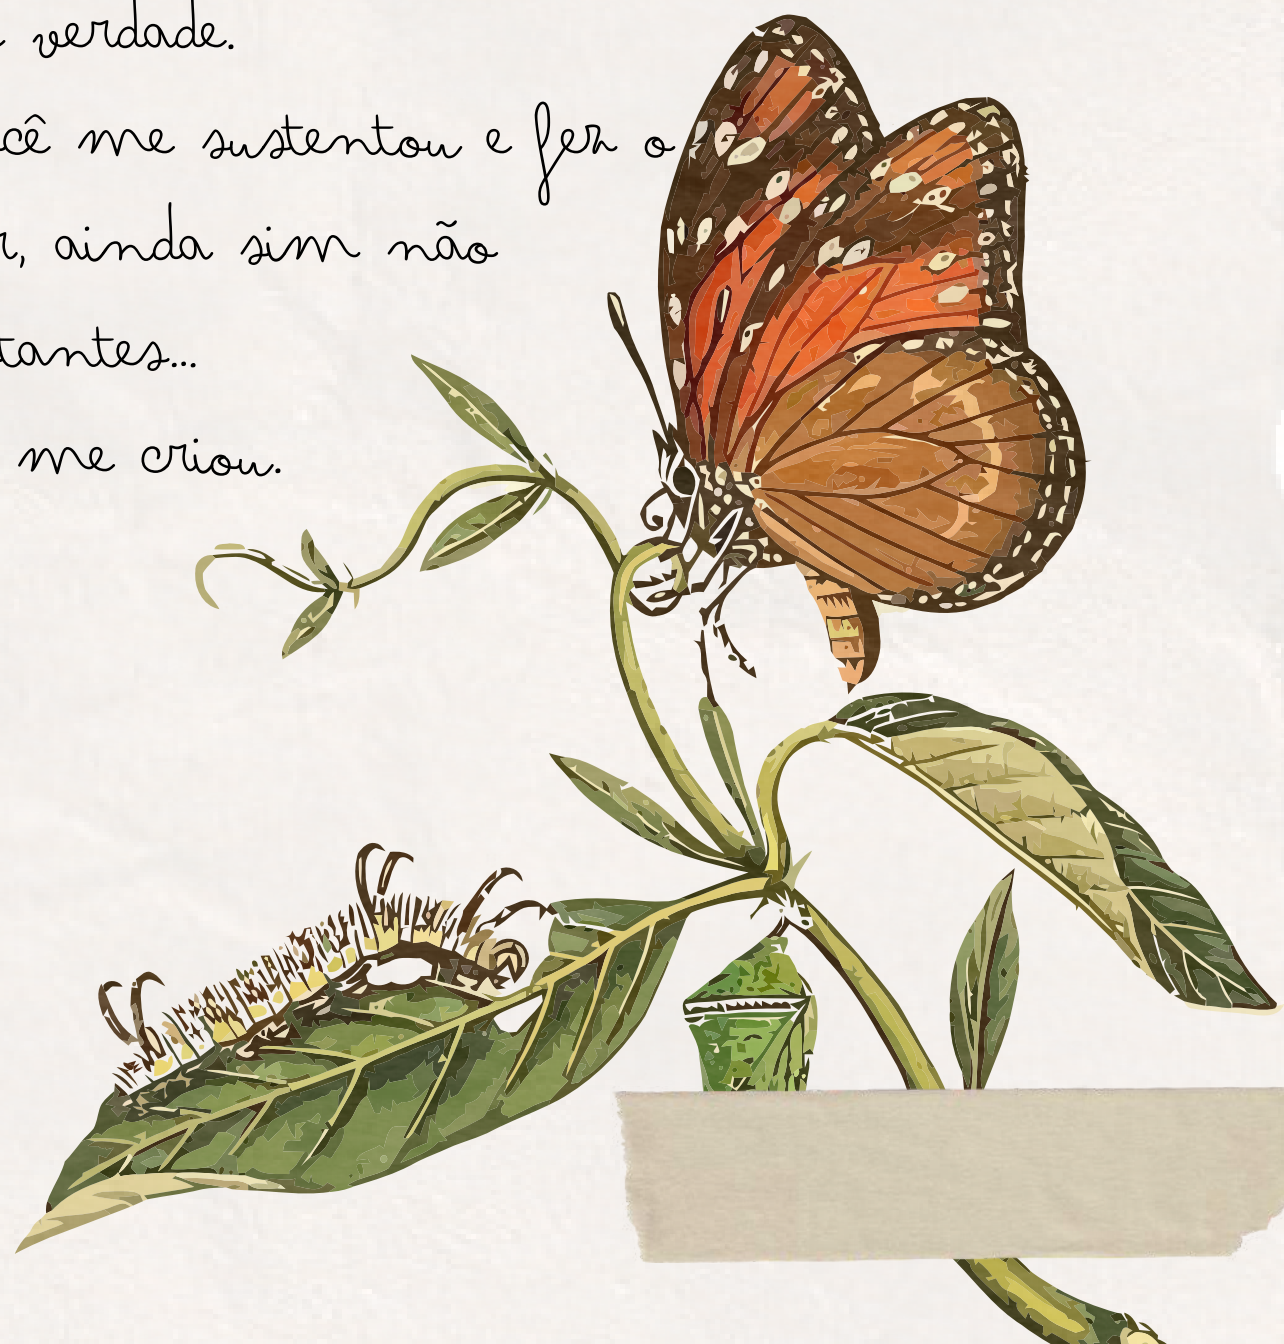 verdade.
cê me sustentou e fez o
r, ainda sim não
tantes...
me criou.